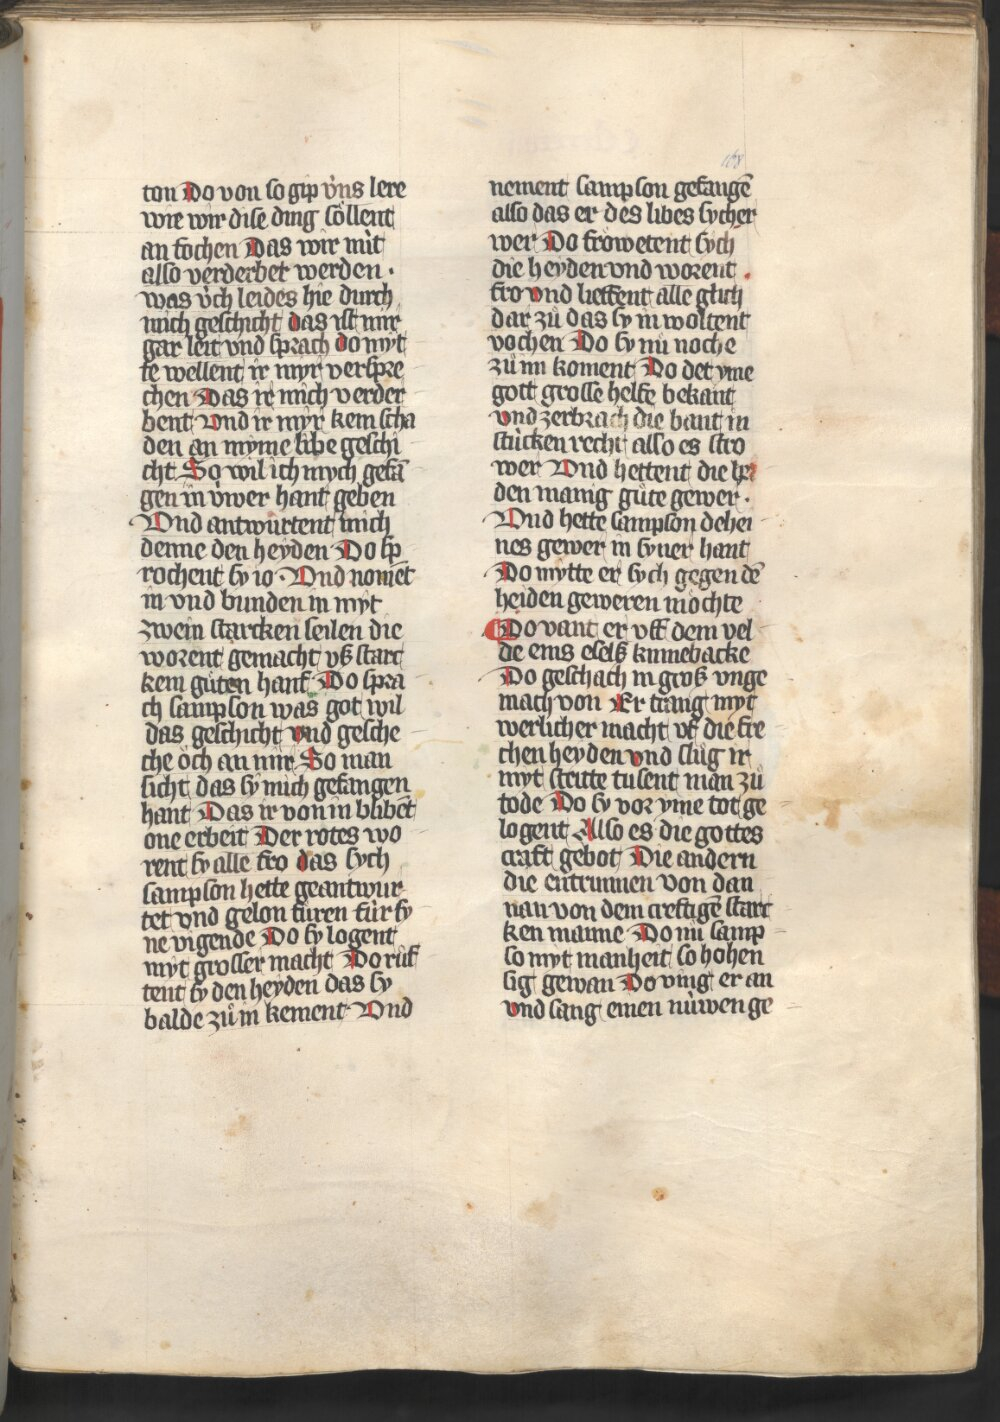 ton Do von so gip v́ns lere
wie wir dise ding söllent
an fochen Das wir nüt
also verderbet werden ·
was v́ch leides hie durch
mich geschicht das ist mir
gar leit vnd sprach do myt
te wellent ir myr verspre
chen Das ir mich verder
bent Vnd ir myr kem scha
den an myme libe geschi
cht So wil ich mych gefā
gen in v́wer hant geben
Vnd antwürtent mich
denne den heyden Do sp
rochent sy io · Vnd nomēt
in vnd bunden in myt
zwein starcken seilen die
worent gemacht vß starc
kem güten hanf Do spra
ch sampson was got wil
das geschicht vnd gesche
che öch an mir So man
sicht das sy mich gefangen
hant Das ir von in blibēt
one erbeit Der rotes wo
rent sy alle fro das sych
sampson hette geantwur
tet vnd gelon füren für sy
ne vigende Do sy logent
myt grosser macht Do růf
tent sy den heyden das sy
balde zů in kement Vnd
nement sampson gefangē
also das er des libes sycher
wer Do fröwetent sych
die heyden vnd worent
fro vnd lieffent alle glich
dar zů das sy in woltent
vochen Do sy nü noche
zů im koment Do det yme
gott grosse helfe bekant
vnd zerbrach die bant in
stücken recht also es stro
wer Vnd hettent die
den manig güte gewer ·
Vnd hette sampson dehei
nes gewer in syner hant
Do mytte er sych gegen dē
heiden geweren möchte
Do vant er vff dem vel
de eins eselß kinnebacke
Do geschach in groß vnge
mach von Er trang myt
werlicher macht vf die fre
chen heyden vnd slůg ir
myt streitte tusent man zů
tode Do sy vor yme tot ge
logent Also es die gottes
craft gebot Die andern
die entrunnen von dan
nan von dem creftigē starc
ken manne Do nü samp
so myt manheit so hohen
sig gewan Do ving er an
vnd sang einen nüwen ge